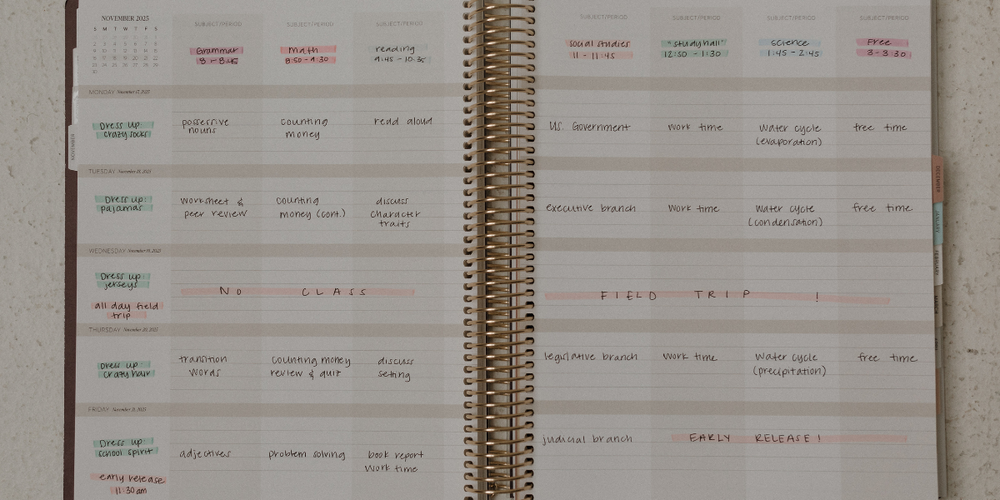 NOVEMBER 2025
S M T W T F S
SUBJECT/PERIOD SUBJECT/PERIOD SUBJECT/PERIOD SUBJECT/PERIOD SUBJECT/PERIOD SUBJECT/PERIOD SUBJECT/PERIOD
Grammar math reading social studies "study hall" science Free
8 - 8:45 8:50 - 9:30 9:45 - 10:30 11 - 11:45 12:50 - 1:30 1:45 - 2:45 3 - 3:30
MONDAY November 17, 2025
Dress up possessive counting read aloud U.S. Government work time water cycle free time
crazy socks nouns money (evaporation)
NOVEMBER
TUESDAY November 18, 2025
Dress up worksheet & counting discuss executive branch work time water cycle free time
pajamas peer review money (cont.) character (condensation)
traits
WEDNESDAY November 19, 2025
Dress up
jerseys
NO CLASS FIELD TRIP !
all day field
trip
THURSDAY November 20, 2025
Dress up transition counting money discuss legislative branch work time water cycle free time
crazy hair words review & quiz setting (precipitation)
FRIDAY November 21, 2025
Dress up judicial branch EARLY RELEASE!
school spirit adjectives problem solving book report
work time
early release
11:30 am